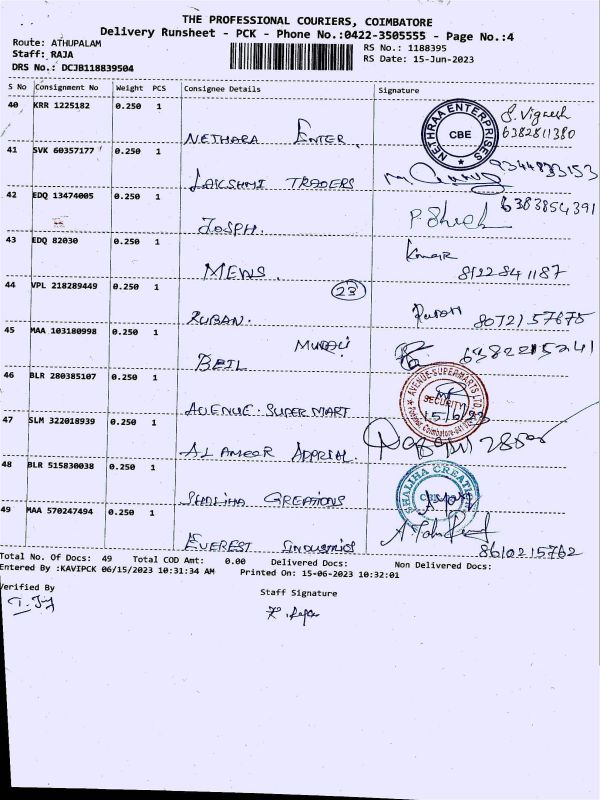 THE PROFESSIONAL COURIERS, COIMBATORE
Delivery Runsheet - PCK - Phone No.:0422-3505555 - Page No.:4
Route: ATHUPALAM
Staff: RAJA
DRS No.: DCJB118839504
RS No.: 1188395
RS Date: 15-Jun-2023
S No Consignment No Weight PCS Consignee Details Signature
40 KRR 1225182 0.250 1
NETHRA ENTER.
NETHRAA ENTERPRISES
CBE
S. Vignesh
6382811380
41 SVK 60357177 0.250 1
LAKSHMI TRADERS
9344833153
42 EDQ 13474005 0.250 1
JOSPH.
6383854391
43 EDQ 82030 0.250 1
MEWS.
Kumar
8122841187
44 VPL 218289449 0.250 1
23
RUBAN.
8072157675
45 MAA 103180998 0.250 1
MURALI
6382215241
46 BLR 280385107 0.250 1
AVENUE. SUPER MART
AVENUE SUPERMARTS LTD
SECURITY
15/6/23
47 SLM 322018939 0.250 1
AL AMEER APPRIAL.
48 BLR 515830038 0.250 1
SHALIHA CREATIONS
SHALIHA CREATIONS
49 MAA 570247494 0.250 1
EVEREST
8610215762
Total No. Of Docs: 49 Total COD Amt: 0.00 Delivered Docs: Non Delivered Docs:
Entered By :KAVIPCK 06/15/2023 10:31:34 AM Printed On: 15-06-2023 10:32:01
Verified By
Staff Signature